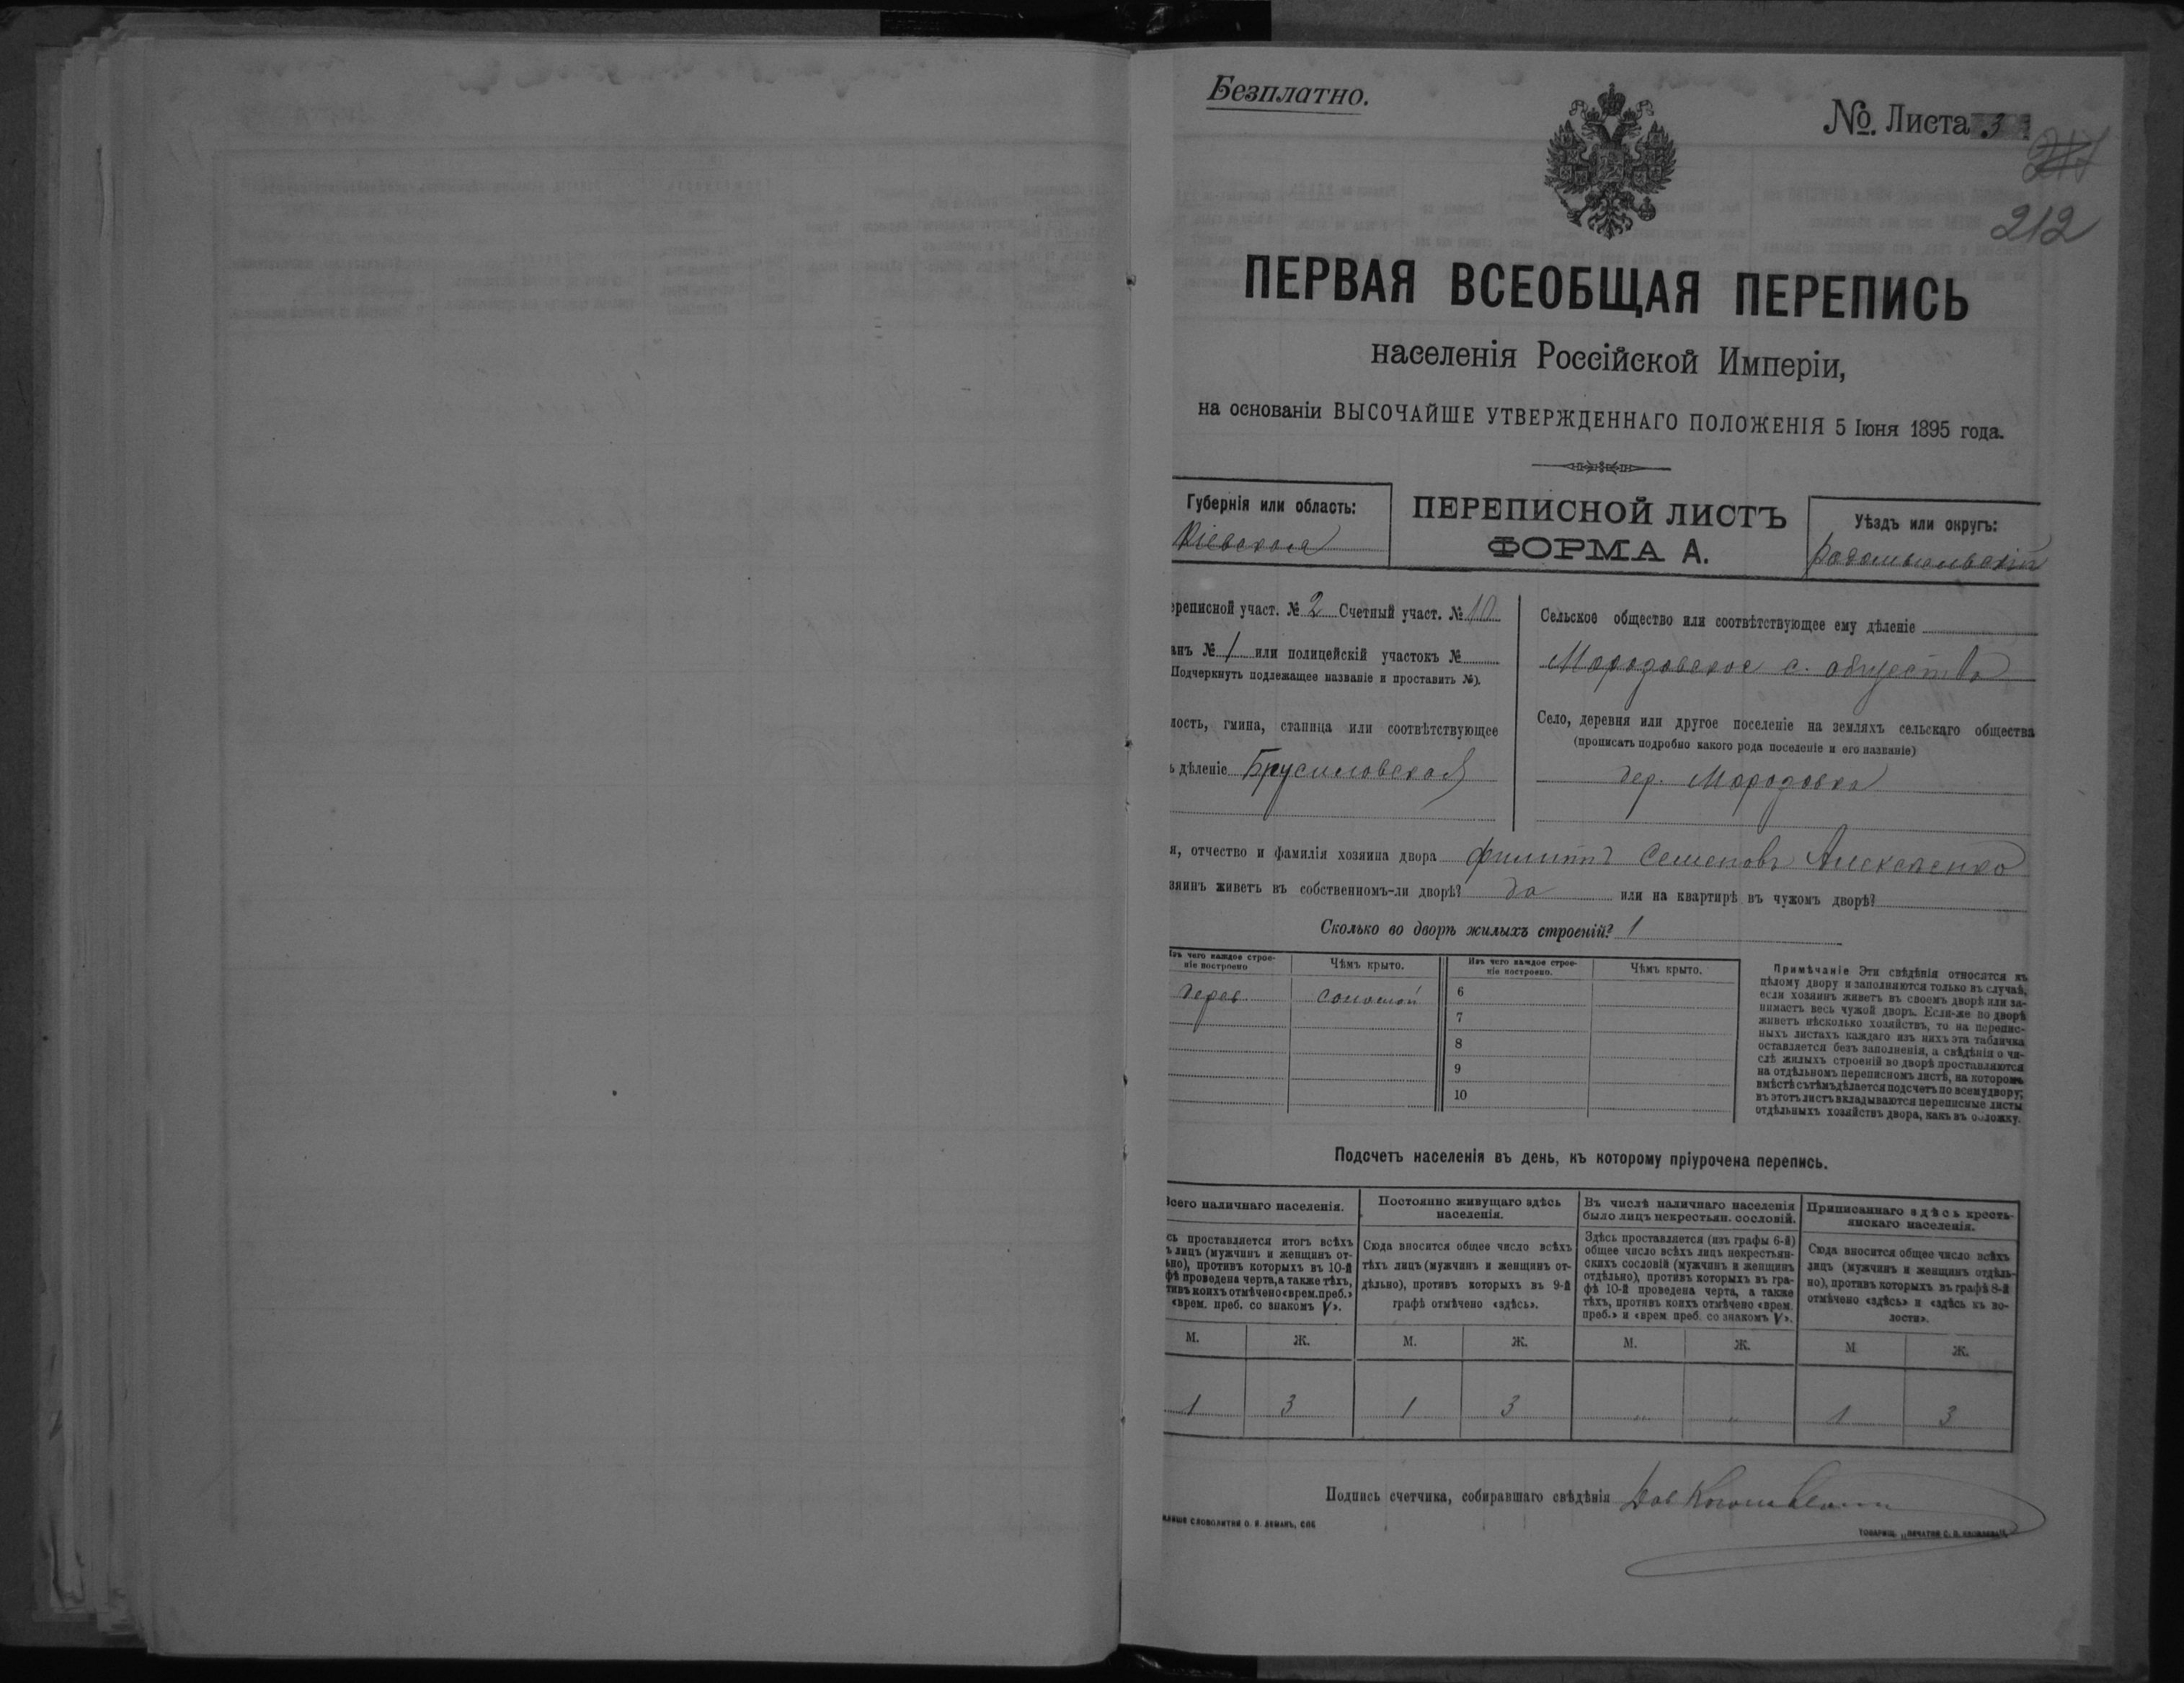 Безплатно.
№. Листа 3
212
ПЕРВАЯ ВСЕОБЩАЯ ПЕРЕПИСЬ
населенія Россійской Имперіи,
на основаніи ВЫСОЧАЙШЕ УТВЕРЖДЕННАГО ПОЛОЖЕНІЯ 5 Іюня 1895 года.
Губернія или область:
Кіевская
ПЕРЕПИСНОЙ ЛИСТЪ
ФОРМА А.
Уѣздъ или округъ:
Радомысльскій
ереписной участ. № 2 Счетный участ. № 10
анъ № 1 или полицейскій участокъ №
Подчеркнуть подлежащее названіе и проставить №).
лость, гмина, станица или соотвѣтствующее
ь дѣленіе Брусиловская
Сельское общество или соотвѣтствующее ему дѣленіе
Мородовское с. общество
Село, деревня или другое поселеніе на земляхъ сельскаго общества
(прописать подробно какого рода поселеніе и его названіе)
дер. Мородовка
я, отчество и фамилія хозяина двора Филиппъ Семеновъ Алексеенко
зяинъ живетъ въ собственномъ-ли дворѣ? да или на квартирѣ въ чужомъ дворѣ?
Сколько во дворѣ жилыхъ строеній? 1
Изъ чего каждое строе-
ніе построено
Чѣмъ крыто.
Изъ чего каждое строе-
ніе построено.
Чѣмъ крыто.
дерев соломой
6
7
8
9
10
Примѣчаніе Эти свѣдѣнія относятся къ
цѣлому двору и заполняются только въ случаѣ,
если хозяинъ живетъ въ своемъ дворѣ или за-
нимаетъ весь чужой дворъ. Если-же во дворѣ
живетъ нѣсколько хозяйствъ, то на перепис-
ныхъ листахъ каждаго изъ нихъ эта табличка
оставляется безъ заполненія, а свѣдѣнія о чи-
слѣ жилыхъ строеній во дворѣ проставляются
на отдѣльномъ переписномъ листѣ, на которомъ
вмѣстѣ съ тѣмъ дѣлается подсчетъ по всему двору;
въ этотъ листъ вкладываются переписные листы
отдѣльныхъ хозяйствъ двора, какъ въ обложку.
Подсчетъ населенія въ день, къ которому пріурочена перепись.
Всего наличнаго населенія.
сь проставляется итогъ всѣхъ
ъ лицъ (мужчинъ и женщинъ от-
ьно), противъ которыхъ въ 10-й
фѣ проведена черта, а также тѣхъ,
тивъ коихъ отмѣчено «врем. преб.»
«врем. преб. со знакомъ V».
Постоянно живущаго здѣсь
населенія.
Сюда вносится общее число всѣхъ
тѣхъ лицъ (мужчинъ и женщинъ от-
дѣльно), противъ которыхъ въ 9-й
графѣ отмѣчено «здѣсь».
Въ числѣ наличнаго населенія
было лицъ некрестьян. сословій.
Здѣсь проставляется (изъ графы 6-й)
общее число всѣхъ лицъ некрестьян-
скихъ сословій (мужчинъ и женщинъ
отдѣльно), противъ которыхъ въ гра-
фѣ 10-й проведена черта, а также
тѣхъ, противъ коихъ отмѣчено «врем.
преб.» и «врем. преб. со знакомъ V».
Приписаннаго здѣсь кресть-
янскаго населенія.
Сюда вносится общее число всѣхъ
лицъ (мужчинъ и женщинъ отдѣль-
но), противъ которыхъ въ графѣ 8-й
отмѣчено «здѣсь» и «здѣсь къ во-
лости».
М. Ж. М. Ж. М. Ж. М Ж.
1 3 1 3 „ „ 1 3
Подпись счетчика, собиравшаго свѣдѣнія
СЛОВОЛИТНЯ О. И. ЛЕМАНЪ, СПБ
ТОВАРИЩ. „ПЕЧАТНЯ С. П. ЯКОВЛЕВА".